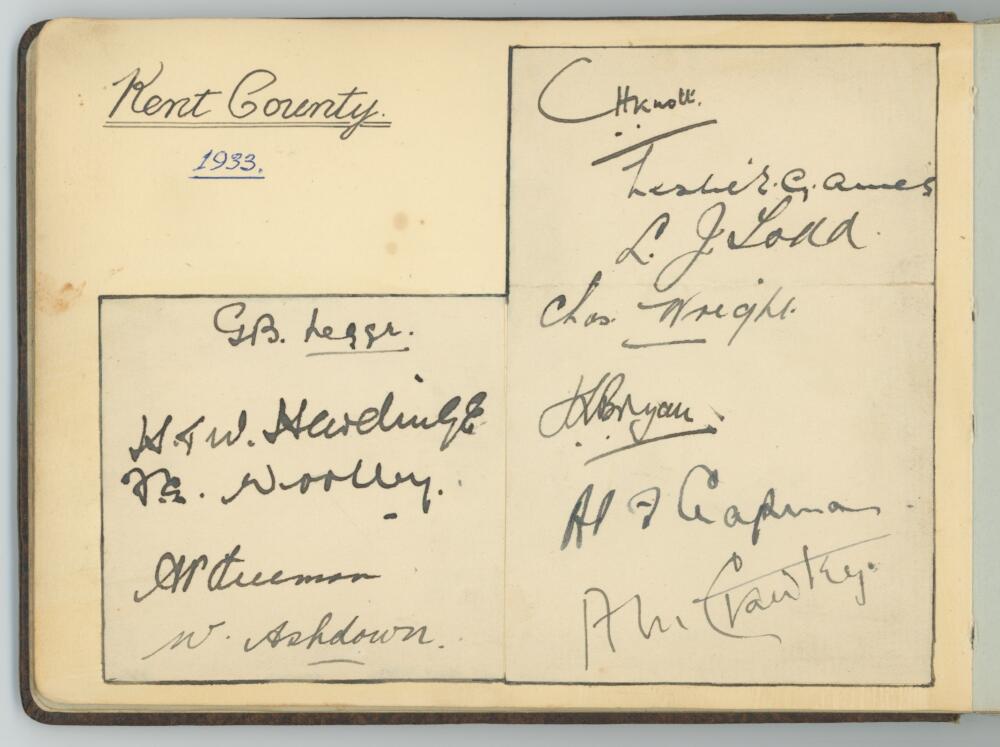 Kent County.
1933.
G.B. Legge.
H.T.W. Hardinge
F.E. Woolley.
A P Freeman
W. Ashdown.
C H Knott.
Leslie E. G. Ames
L. J. Todd.
Chas. Wright.
Bryan.
A P F Chapman.
A M Crawley.